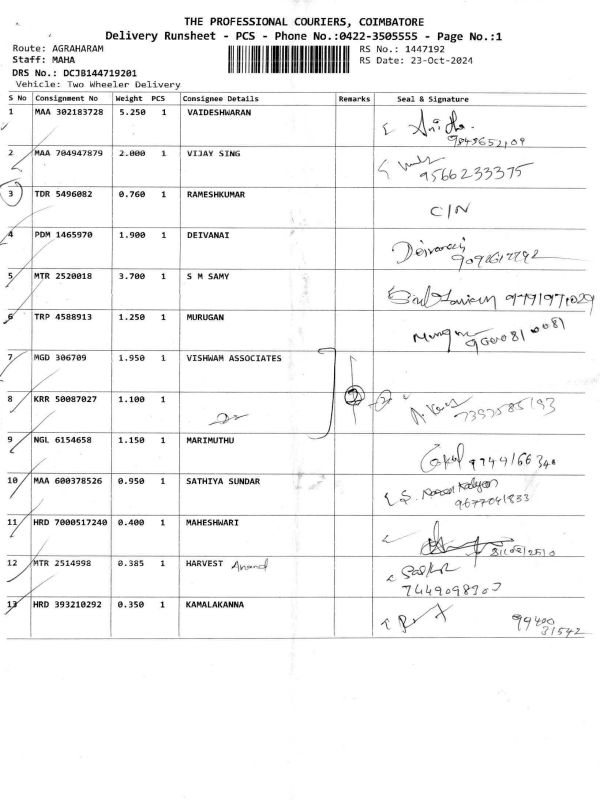 THE PROFESSIONAL COURIERS, COIMBATORE
Delivery Runsheet - PCS - Phone No.:0422-3505555 - Page No.:1
Route: AGRAHARAM RS No.: 1447192
Staff: MAHA RS Date: 23-Oct-2024
DRS No.: DCJB144719201
Vehicle: Two Wheeler Delivery
S No Consignment No Weight PCS Consignee Details Remarks Seal & Signature
1 MAA 302183728 5.250 1 VAIDESHWARAN Anitha
2 MAA 704947879 2.000 1 VIJAY SING
9566233375
3 TDR 5496082 0.760 1 RAMESHKUMAR
C/N
4 PDM 1465970 1.900 1 DEIVANAI Deivanai
5 MTR 2520018 3.700 1 S M SAMY
6 TRP 4588913 1.250 1 MURUGAN Murugan
7 MGD 306709 1.950 1 VISHWAM ASSOCIATES
8 KRR 50087027 1.100 1
7397585193
9 NGL 6154658 1.150 1 MARIMUTHU
Gokul
10 MAA 600378526 0.950 1 SATHIYA SUNDAR
9677041833
11 HRD 7000517240 0.400 1 MAHESHWARI
12 MTR 2514998 0.385 1 HARVEST Anand
13 HRD 393210292 0.350 1 KAMALAKANNA
99400
31542